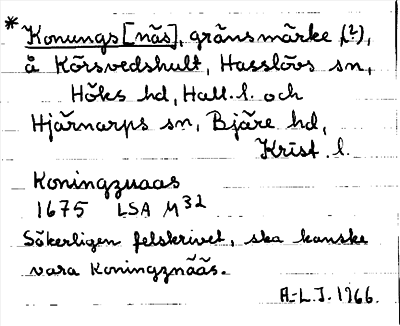 * Konungs[näs], gränsmärke (?),
å Körsvedshult, Hasslövs sn,
Höks hd, Hall. l. och
Hjärnarps sn, Bjäre hd,
Krist. l.
Koningzuaas
1675 LSA M32
Säkerligen felskrivet, ska kanske
vara Koningznääs.
A.-L.J. 1966.